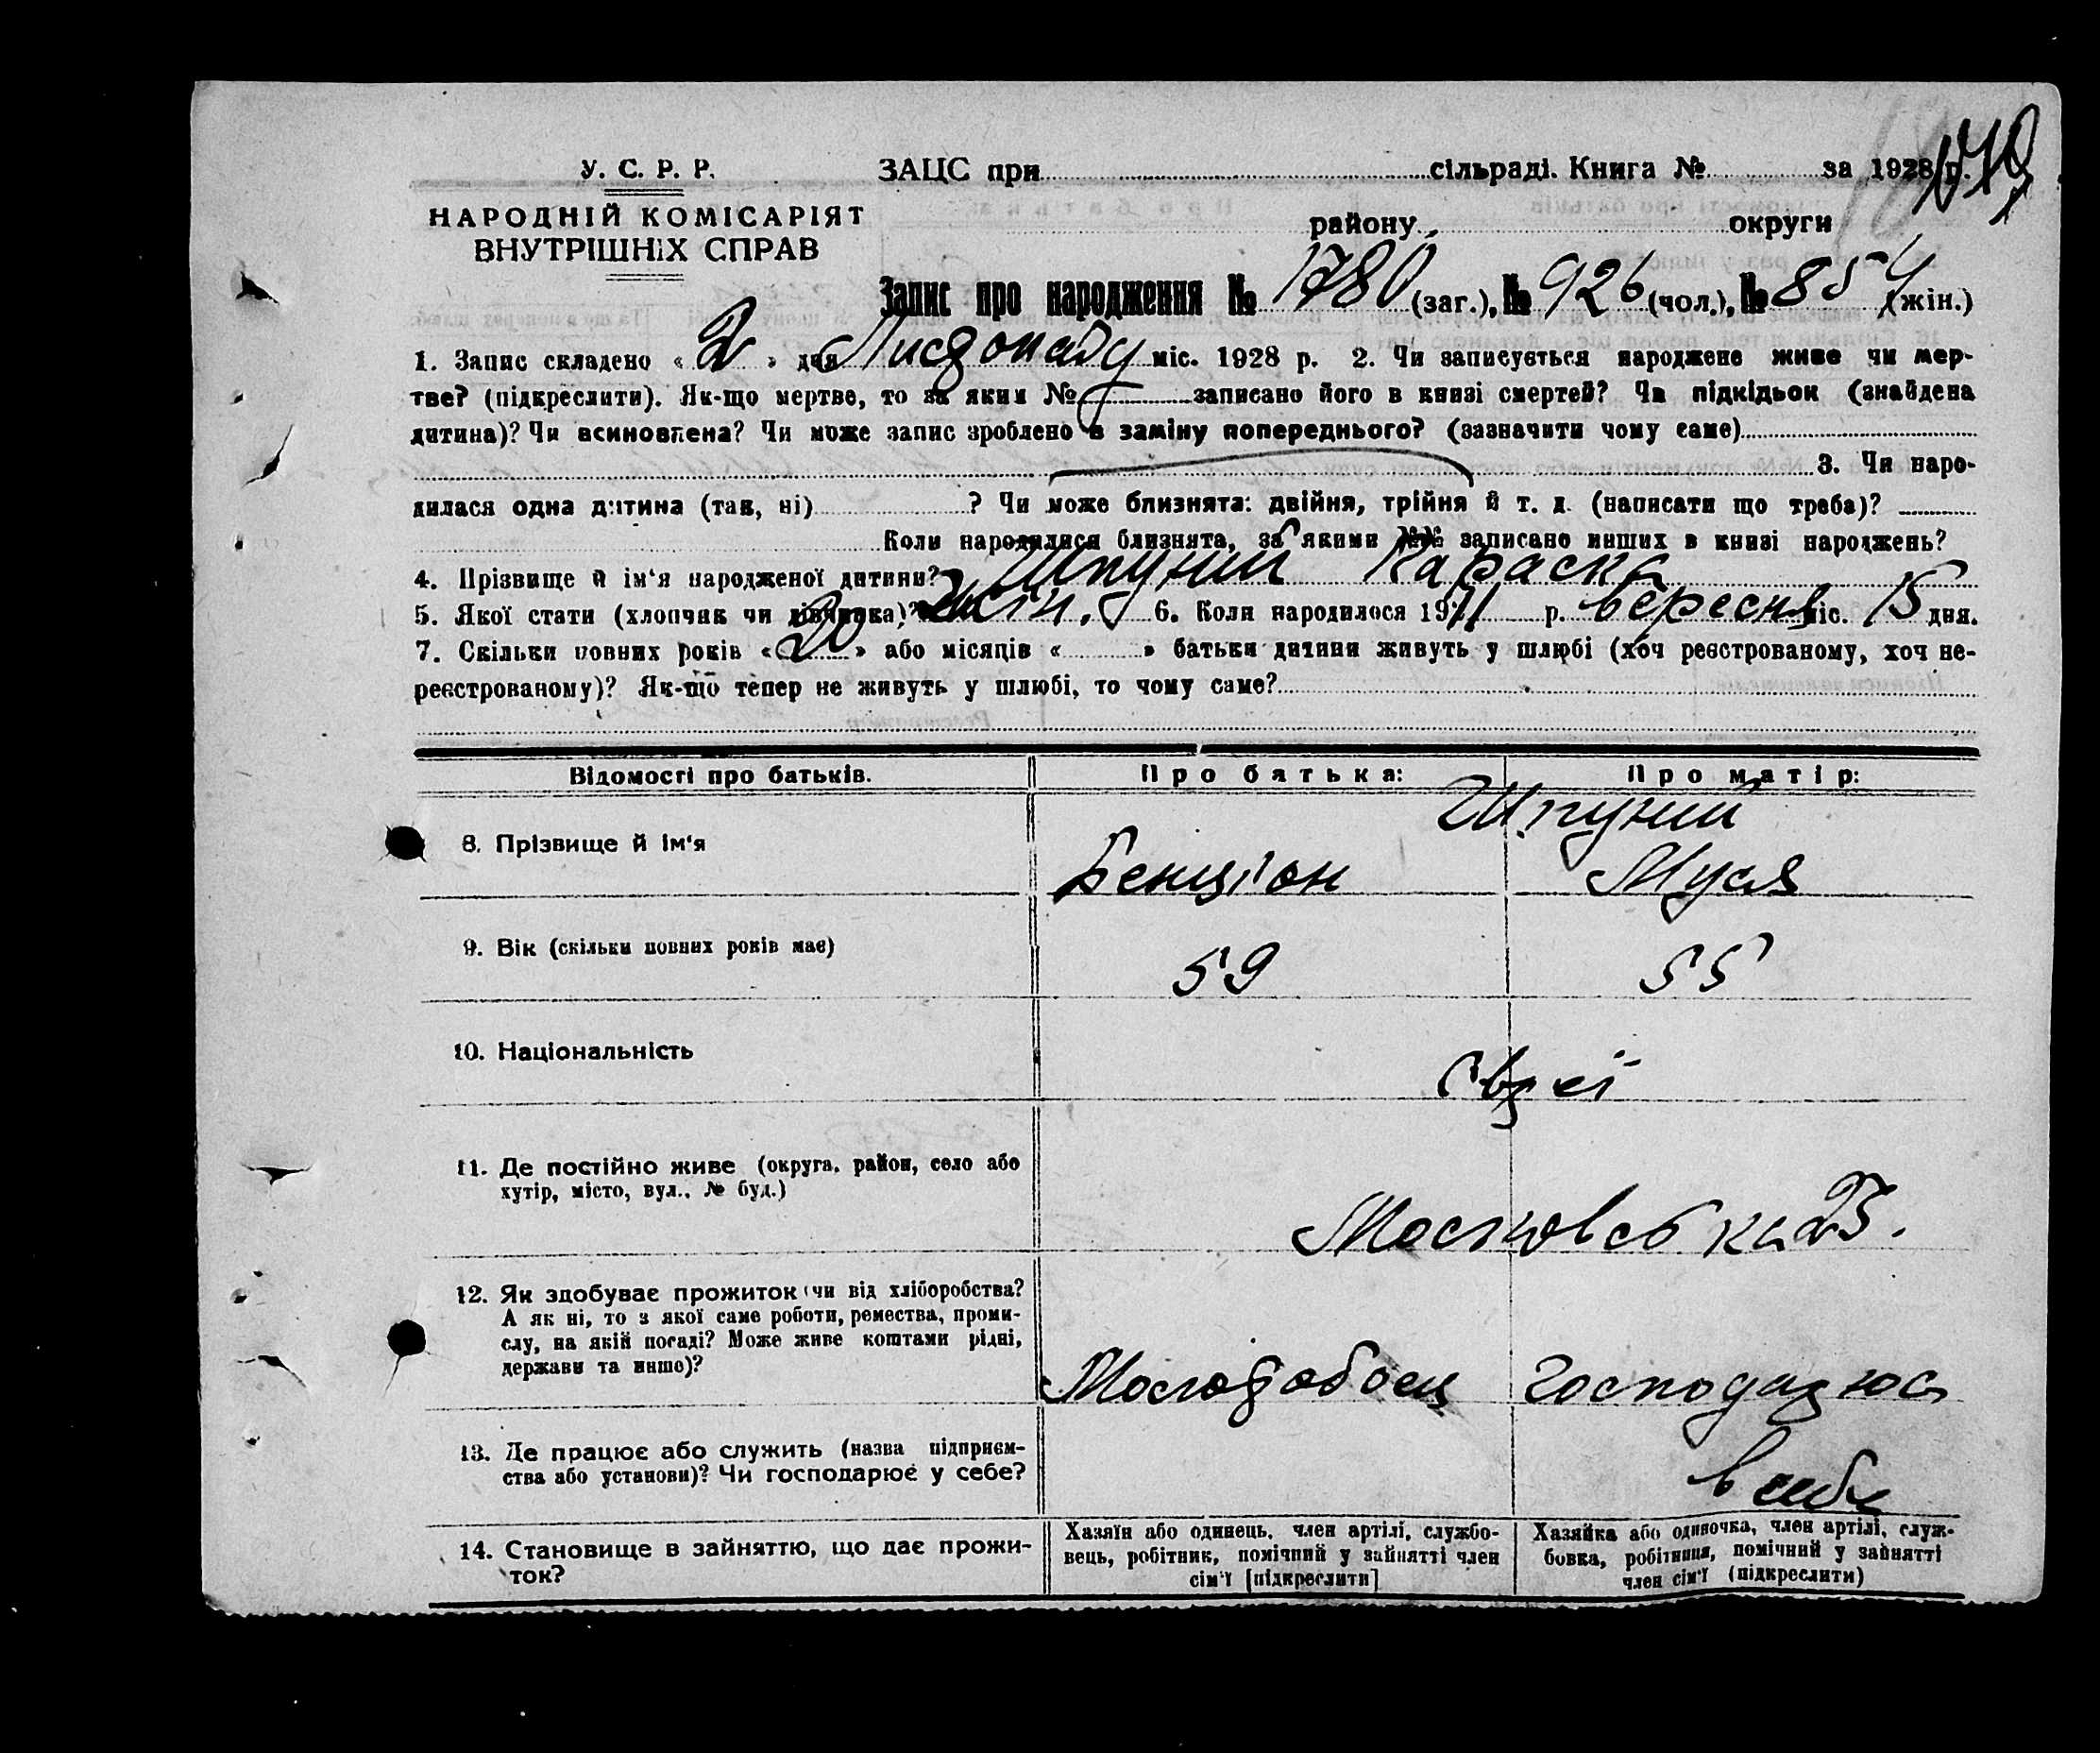 У. С. Р. Р.
НАРОДНІЙ КОМІСАРІЯТ
ВНУТРІШНІХ СПРАВ
ЗАЦС при сільраді. Книга № за 1928 р.
району округи
Запис про народження № 1780 (заг.), № 926 (чол.), № 854 (жін.)
1. Запис складено « 2 » дня Листопаду міс. 1928 р. 2. Чи записується народжене живе чи мер-
тве? (підкреслити). Як-що мертве, то за яким № записано його в книзі смертей? Чи підкідьок (знайдена
дитина)? Чи всиновлена? Чи може запис зроблено в заміну попереднього? (зазначити чому саме)
3. Чи наро-
дилася одна дитина (так, ні) ? Чи може близнята: двійня, трійня й т. д. (написати що треба)?
Коли народилися близнята, за якими №№ записано инших в книзі народжень?
4. Прізвище й ім‘я народженої дитини? Шпуний
5. Якої стати (хлопчик чи дівчинка)? жін. 6. Коли народилося 1911 р. вересня міс. 15 дня.
7. Скільки повних років « 20 » або місяців « » батьки дитини живуть у шлюбі (хоч реєстрованому, хоч не-
реєстрованому)? Як-що тепер не живуть у шлюбі, то чому саме?
Відомості про батьків. Про батька: Про матір:
Шпуний
8. Прізвище й ім‘я Бенціон Муся
9. Вік (скільки повних років має) 59 55
10. Національність Євреї
11. Де постійно живе (округа, район, село або
хутір, місто, вул., № буд.)
Московська 23.
12. Як здобуває прожиток (чи від хліборобства?
А як ні, то з якої саме роботи, ремества, проми-
слу, на якій посаді? Може живе коштами рідні,
держави та инше)?
Господарює
13. Де працює або служить (назва підприєм-
ства або установи)? Чи господарює у себе?
в себе
14. Становище в зайняттю, що дає прожи-
ток?
Хазяїн або одинець, член артілі, службо-
вець, робітник, помічний у зайнятті член
сім‘ї [підкреслити]
Хазяйка або одиночка, член артілі, служ-
бовка, робітниця, помічний у зайнятті
член сім‘ї (підкреслити)